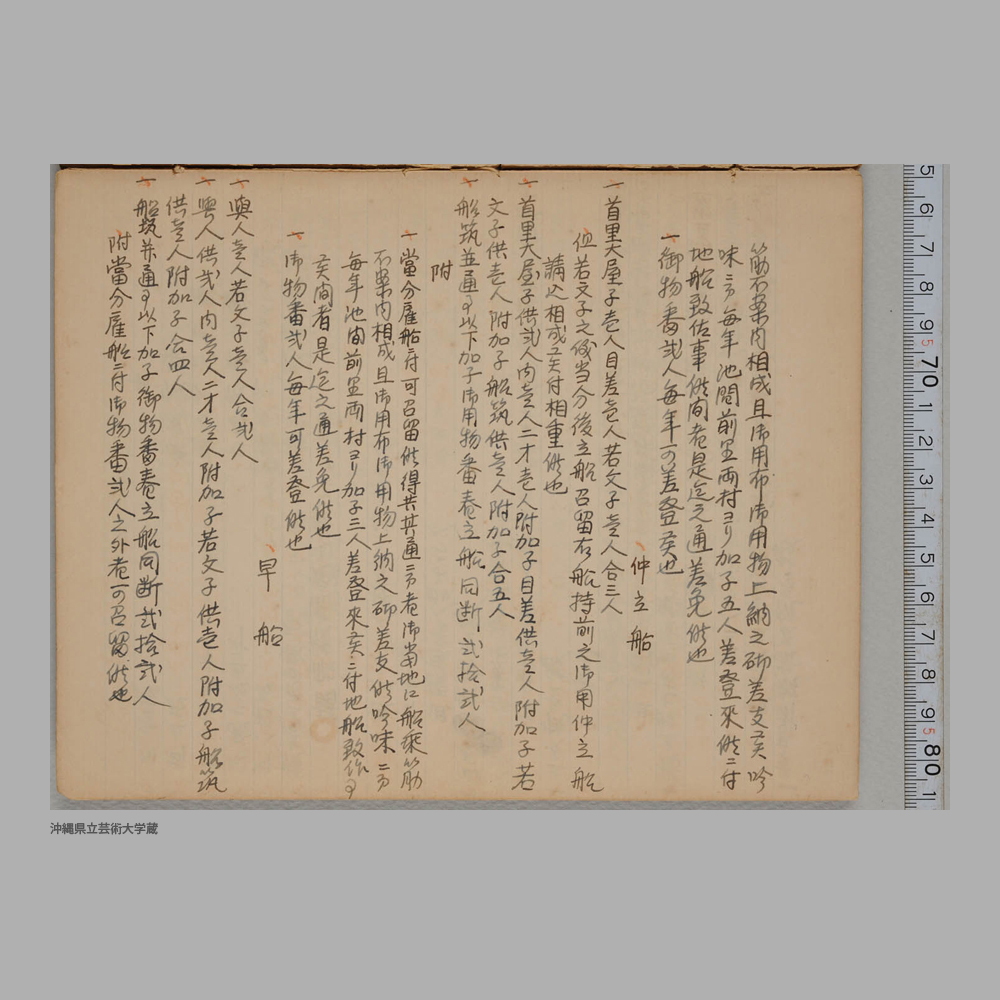 筋不案内相成且御用布御用物上納之砌差支候吟
味ニ而毎年池間前里両村ヨリ加子五人差登來候ニ付
地船致佐事候間者是迄之通差免候也
一御物番弐人毎年可差登候也
仲立船
一首里大屋子壱人目差壱人若文子壱人合三人
但若文子之儀当分後立船召留右船持前之御用仲立船
請込相成候付相重候也
一首里大屋子供弐人内壱人二才壱人附加子目差供壱人附加子若
文子供壱人附加子船筑供壱人附加子合五人
一船筑並通事以下加子御用物番春立船同断弐拾弐人
附
一當分雇船ニ付可召留候得共其通ニ而者御当地江船乗筋
不案内相成且御用布御用物上納之砌差支候吟味ニ而
毎年池間前里両村ヨリ加子三人差登來候ニ付地船致作事
候間者是迄之通差免候也
一御物番弐人毎年可差登候也
早船
一與人壱人若文子壱人合弐人
一與人供弐人内壱人二才壱人附加子若文子供壱人附加子船筑
供壱人附加子合四人
一船筑并通事以下加子御物番春立船同断弐拾弐人
附當分雇船ニ付御物番弐人之外者可召留候也
5 6 7 8 95 70 1 2 3 4 5 6 7 8 95 80 1
沖縄県立芸術大学蔵